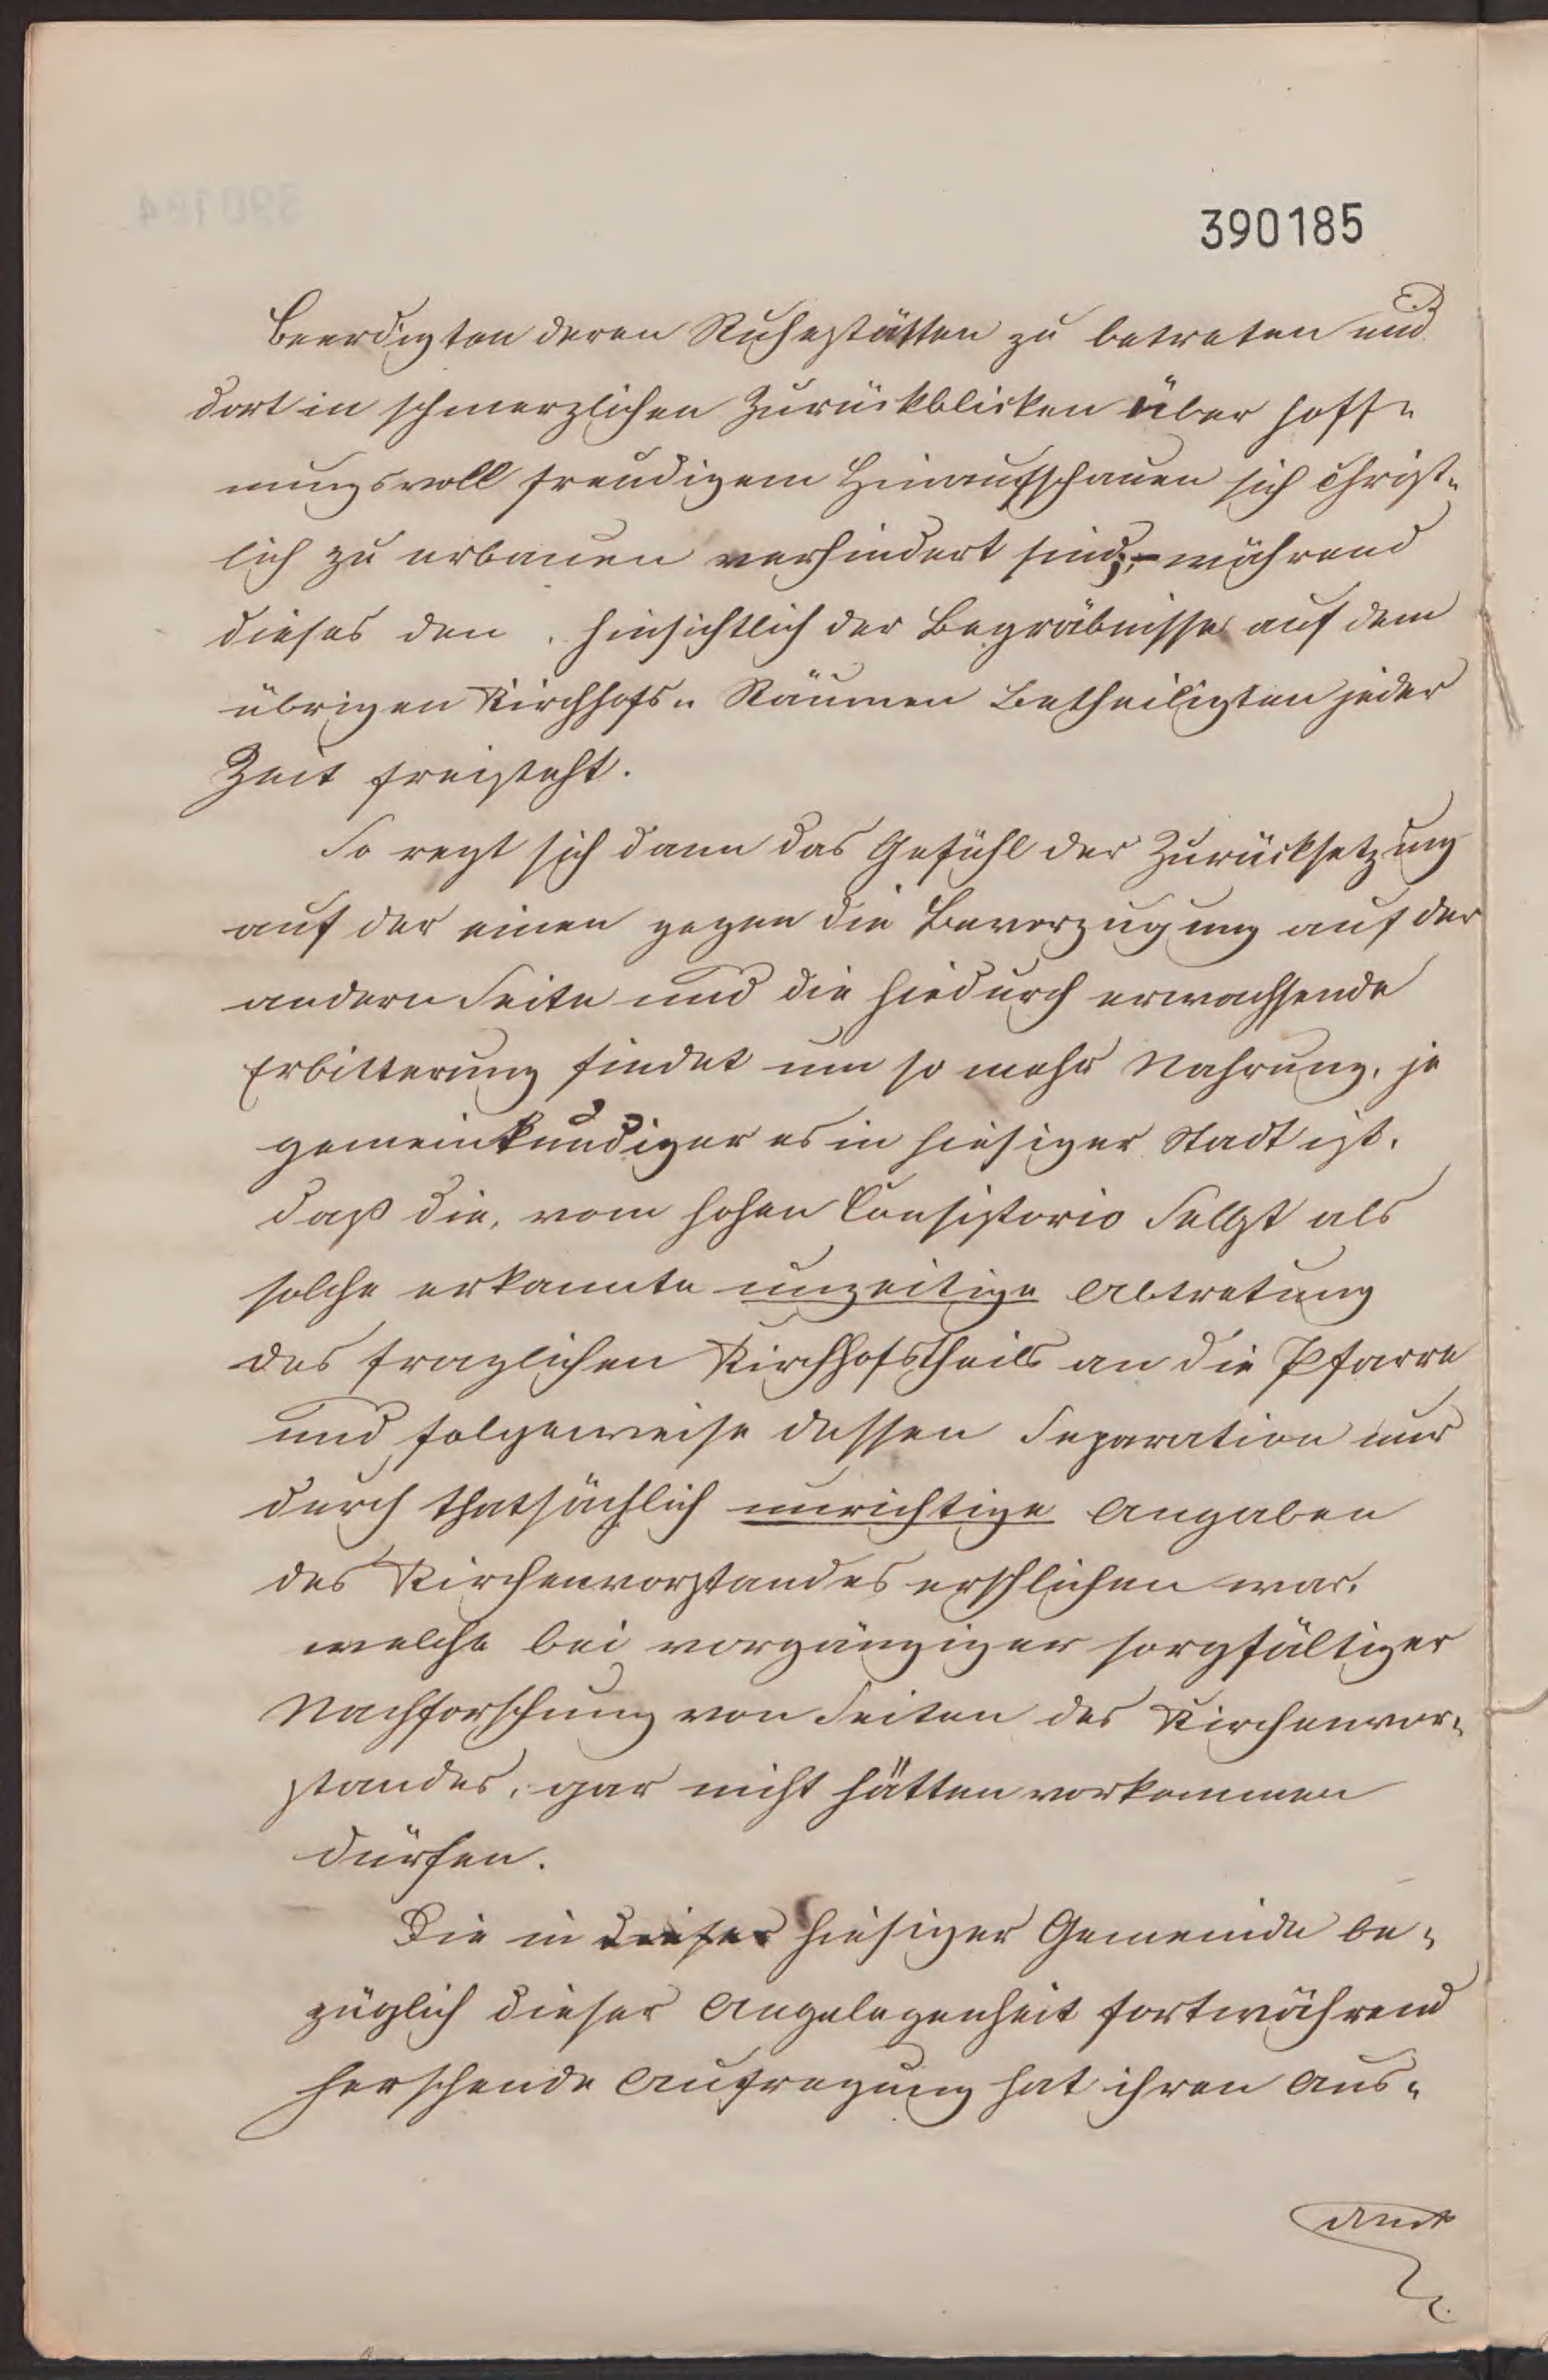 390185
Beerdigten deren Ruhestätten zu betreten und
dort in schmerzlichen Zurückblicken über hoff-
nungsvoll freudigem Hinaufschauen sich christ-
lich zu erbauen verhindert sind;- während
dieses den, hinsichtlich der Begräbnisse auf dem
übrigen Kirchhofs- Räumen Betheiligten jeder
Zeit freisteht.
So regt sich dann das Gefühl der Zurücksetzung
auf der einen gegen die Bevorzugung auf der
andern Seite und die hiedurch erwachsende
Erbitterung findet um so mehr Nahrung, je
gemeinkundiger es in hiesiger Stadt ist,
daß die, vom hohen Consistorio Selbst als
solche erkannte unzeitige Abtretung
des fraglichen Kirchhofstheils an die Pfarre
und folgeweise dessen Separation nur
durch thatsächlich unrichtige Angaben
des Kirchenvorstandes erschlichen war,
welche bei vorgängiger sorgfältiger
Nachforschung von Seiten des Kirchenvor-
standes, gar nicht hätten vorkommen
dürfen.
Die in dieser hiesiger Gemeinde be-
züglich dieser Angelegenheit fortwährend
herschende Aufregung hat ihren Aus-